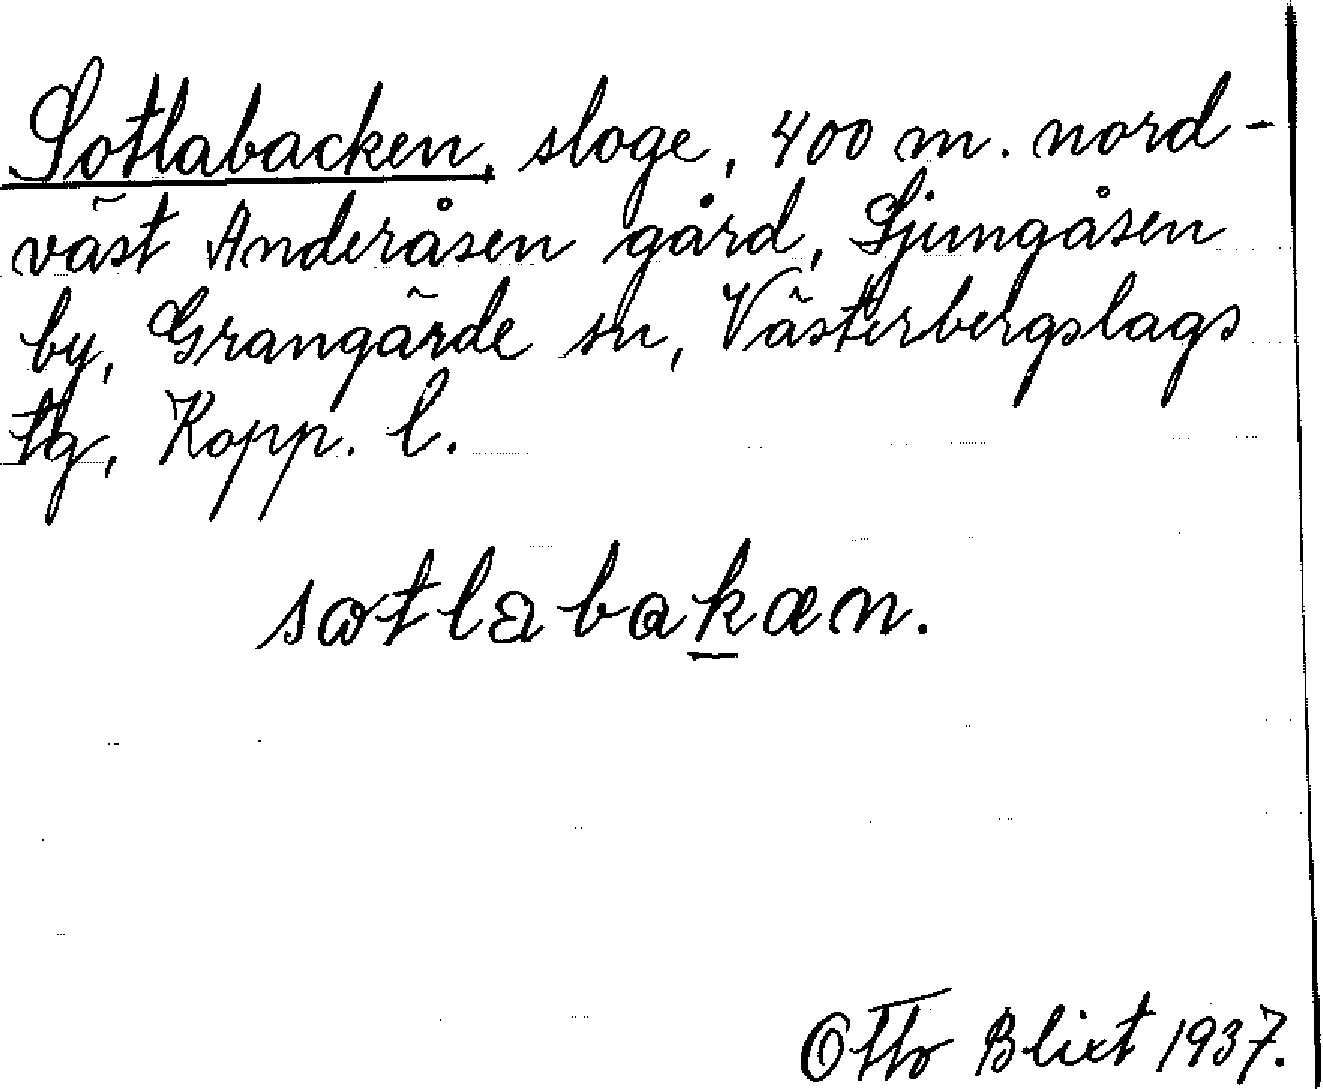 Sotlabacken, sloge, 400 m. nord-
väst Anderåsen gård, Ljungåsen
by, Grangärde sn, Västerbergslags
tg, Kopp. l.
sɷtlabakæn.
Otto Blixt 1937.